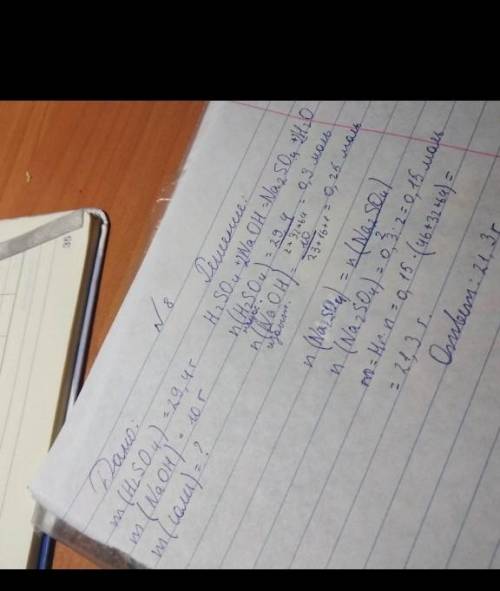 35
№ 8
Дано:
m(H2SO4) = 29,4 г
m(NaOH) = 10 г
m(соли) = ?
Решение:
H2SO4+2NaOH=Na2SO4+2H2O
n(H2SO4) = 29,4 / 2+32+64 = 0,3 моль
n(NaOH) = 10 / 23+16+1 = 0,25 моль
n(Na2SO4) = n(Na2SO4)
n(Na2SO4) = 0,3 : 2 = 0,15 моль
m = Mr·n = 0,15·(46+32+64) =
= 21,3 г.
Ответ: 21,3 г